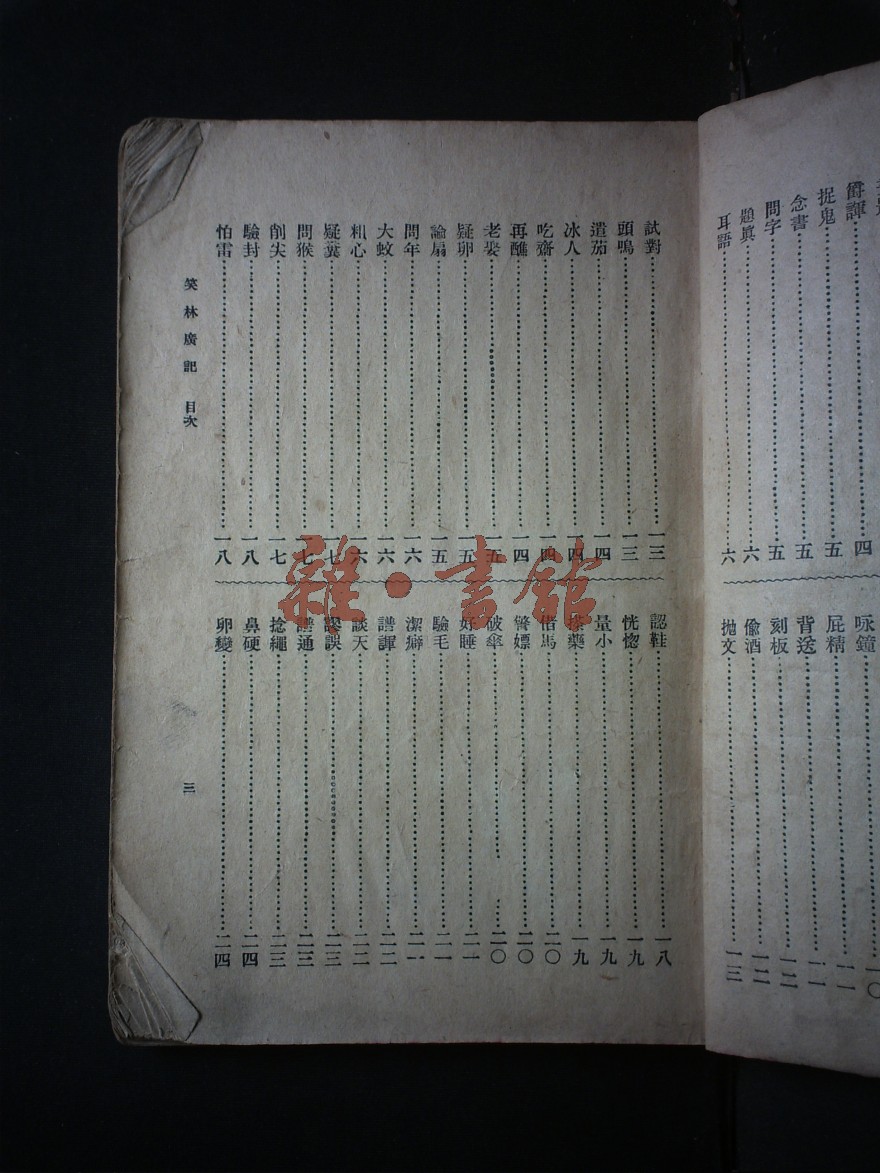 捉鬼 五
念書 五
問字 五
題真 六
耳語 六
咏鐘 一〇
屁精 一一
背送 一一
刻板 一二
偷酒 一二
拋文 一三
試對 一三
頭鳴 一三
遣茄 一四
冰人 一四
吃齋 一四
再醮 一四
一五
疑卵 一五
論扇 一五
問年 一六
大蚊 一六
粗心 一六
疑糞 一七
問猴 一七
削尖 一七
驗封 一八
怕雷 一八
認鞋 一八
恍惚 一九
量小 一九
搽藥 一九
借馬 二〇
二〇
破傘 二〇
好睡 二一
驗毛 二一
潔癖 二一
二二
談天 二二
謬誤 二三
譜通 二三
捻繩 二三
鼻硬 二四
卵變 二四
笑林廣記 目次
三
雜·書館